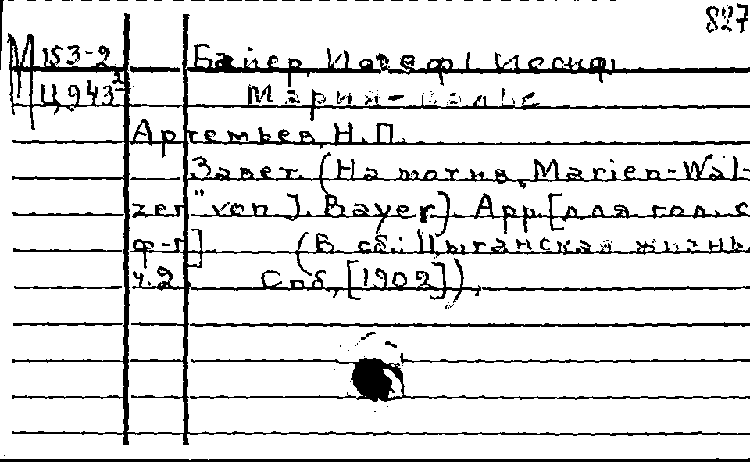 827
М 153-2 Байер, Иозеф / Иосиф
Ц943² Мария-вальс
Артемьев, Н.П.
Завет. (На мотив „Marien-Wal-
zer" von J. Bayer). Арр. [для гол. с
ф-п]. (В сб.: Цыганская жизнь.
ч. 2. Спб, [1902]).